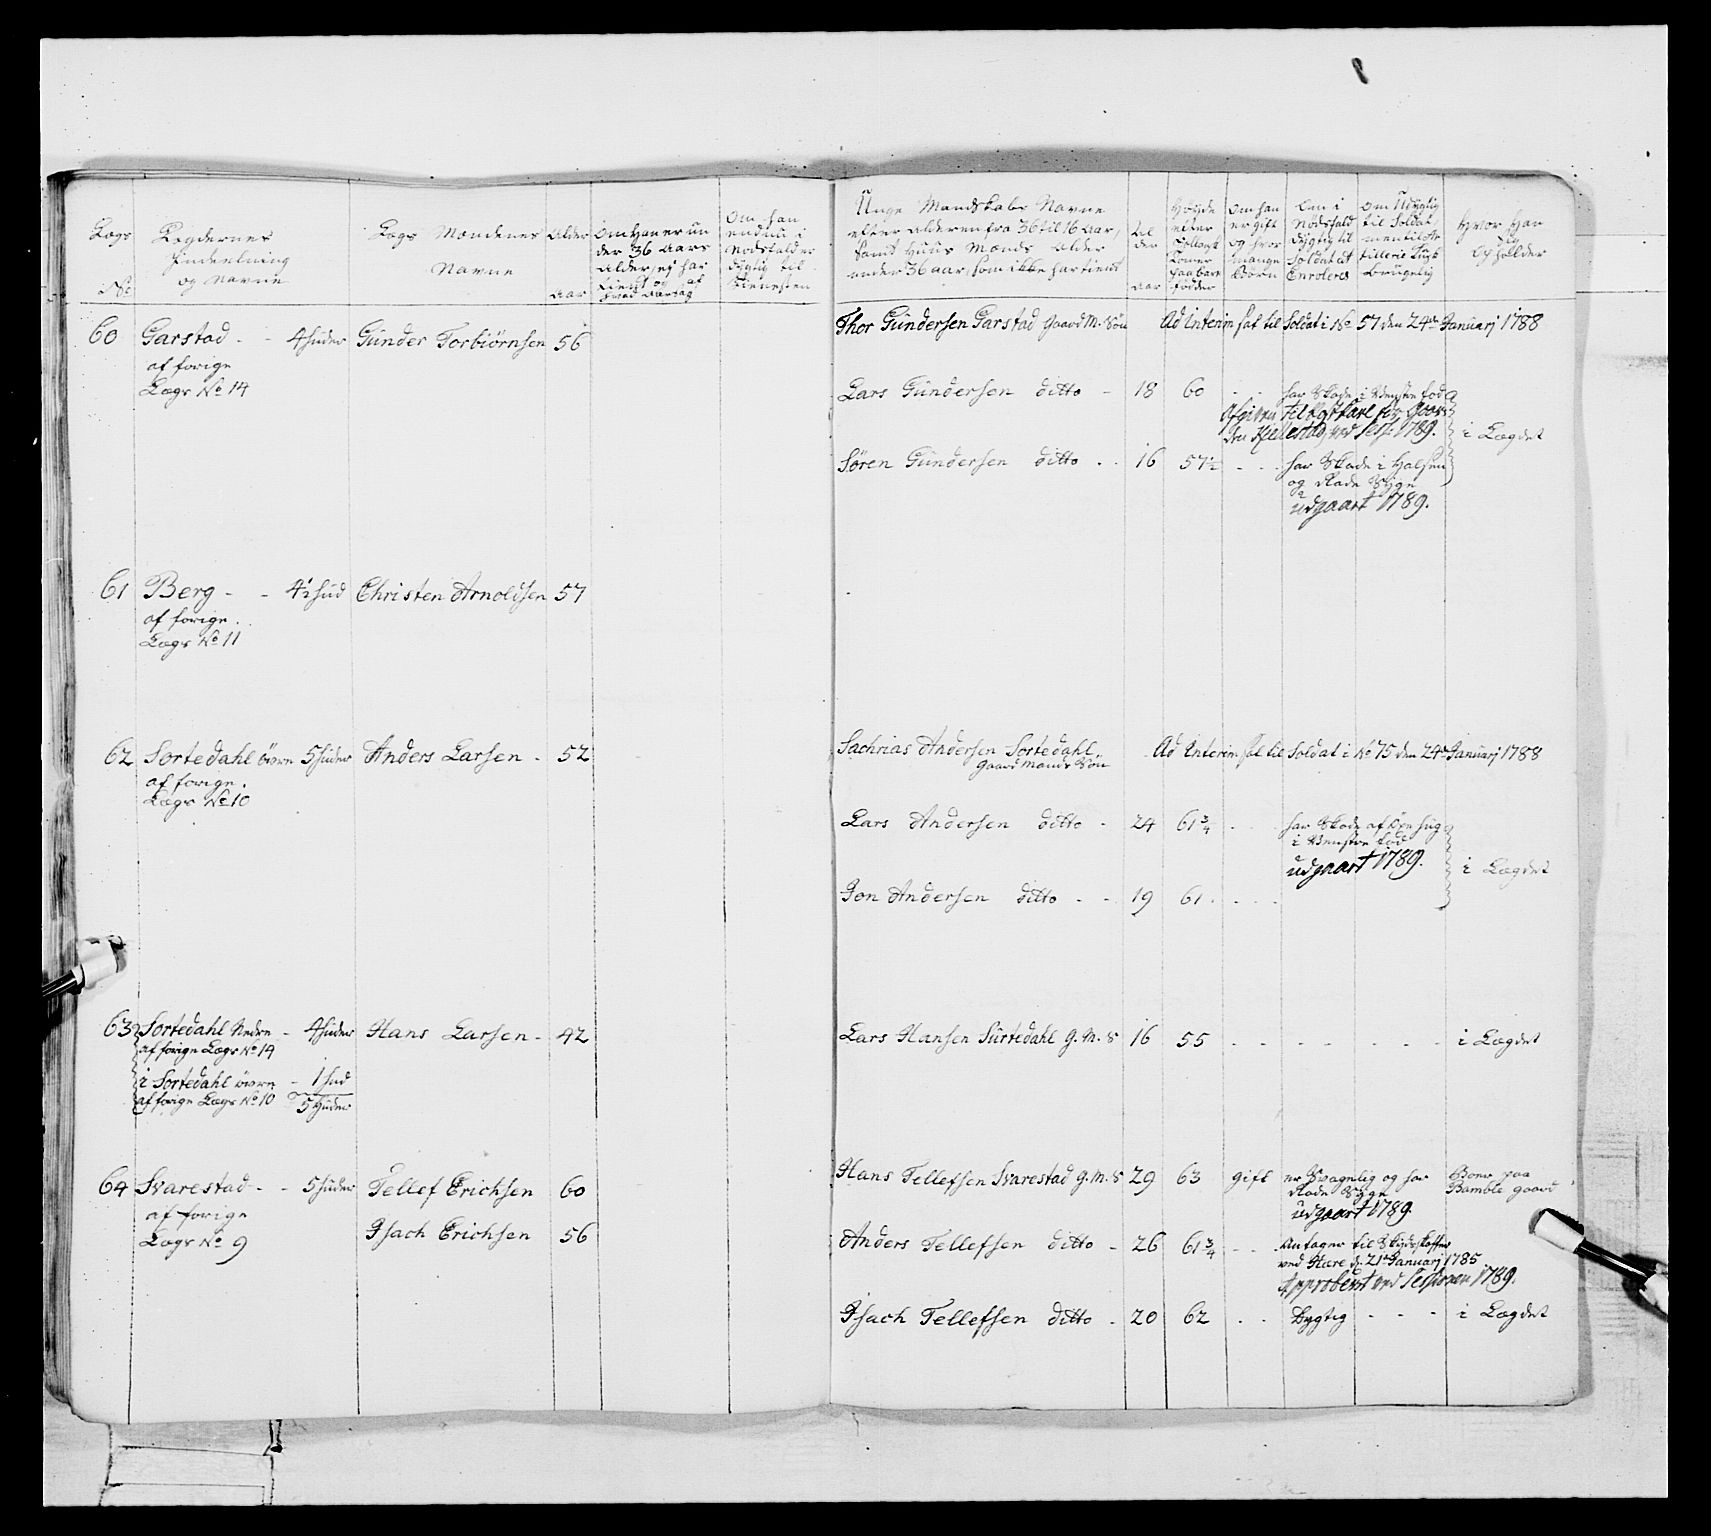 Lægs
No
Lægdernes
Jnddeelning
og Navne
Lægs Mændenes
Navne
Alder
Aar
Om Han er un
der 36 Aars
Alder, ej har
tient og af
hvad Aarsag
Om han
endnu i
Nødsfald er
dygtig til
Tienesten
Unge Mandskabs Navne
efter Alderen fra 36 til 16 Aar,
samt Huus Mænds Alder
under 36 Aar, som ikke har tient
Al
der
Aar
Høyde
efter
fødder
Om han
er gift
og hvor
mange
Børn
Om i
Nødsfald
dygtig til
Soldat et
Enrolered
Om Udygtig
til Soldat,
men til Ar
tillerie Kusk
brugelig
Hvor Han
Opholder
60 Garstad - - 4 huder Gunder Torbiørnsen 56
af forige
Lægs No 14
Thor Gundersen Garstad Gaard M. Søn Ad Interim sat til Soldat i No 57 den 24de Januarj 1788
Lars Gundersen ditto - 18 60 - - har Skade i Venstre fod
Afgiven til
ved Sess: 1789. i Lægdet
Søren Gundersen ditto . . 16 57½ - - - har Skade i Halsen
og Rade Syge
udgaart 1789.
61 Berg - - 4½ hud Christen Arnoldsen 57
af forige
Lægs No 11
62 Sortedahl øvre 5 huder Anders Larsen - 52
af forige
Lægs No 10
Sachrias Andersen Sortedahl
Gaard Mands Søn
Ad Interim sat til Soldat i No 75 den 24de Januarj 1788
Lars Andersen ditto - 24 61¾ - - har Skade af Øxe hug
i Venstre fod
udgaart 1789. i Lægdet
Jon Andersen ditto - - 19 61 - - -
63 Sortedahl Nedre - 4 huder Hans Larsen - 42
af forige Lægs No 14
i Sortedahl øvre - 1 hud
af forige Lægs No 10 5 Huder
Lars Hansen Surtedahl G. M. S 16 55 - - - - - - - i Lægdet
64 Svarestad - - 5 huder Tellef Erichsen 60
af forige
Lægs No 9
Jsach Erichsen 56
Hans Tellefsen Svarestad G. M. S 29 63 gift er Svagelig og har
Rade Syge
udgaart 1789.
Boer paa
Bamble gaard
Anders Tellefsen ditto - 26 61¾ - - Antagen til Skydskaffer
ved Stære d. 21de Januarj 1785
Approbert ved Sessionen 1789.
Jsach Tellefsen ditto . 20 62 . . Dygtig - - - i Lægdet